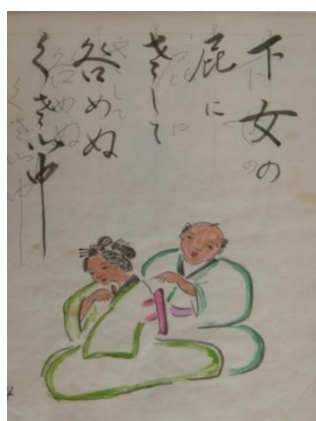 下女の
屁に
さして
咎めぬ
くさい中